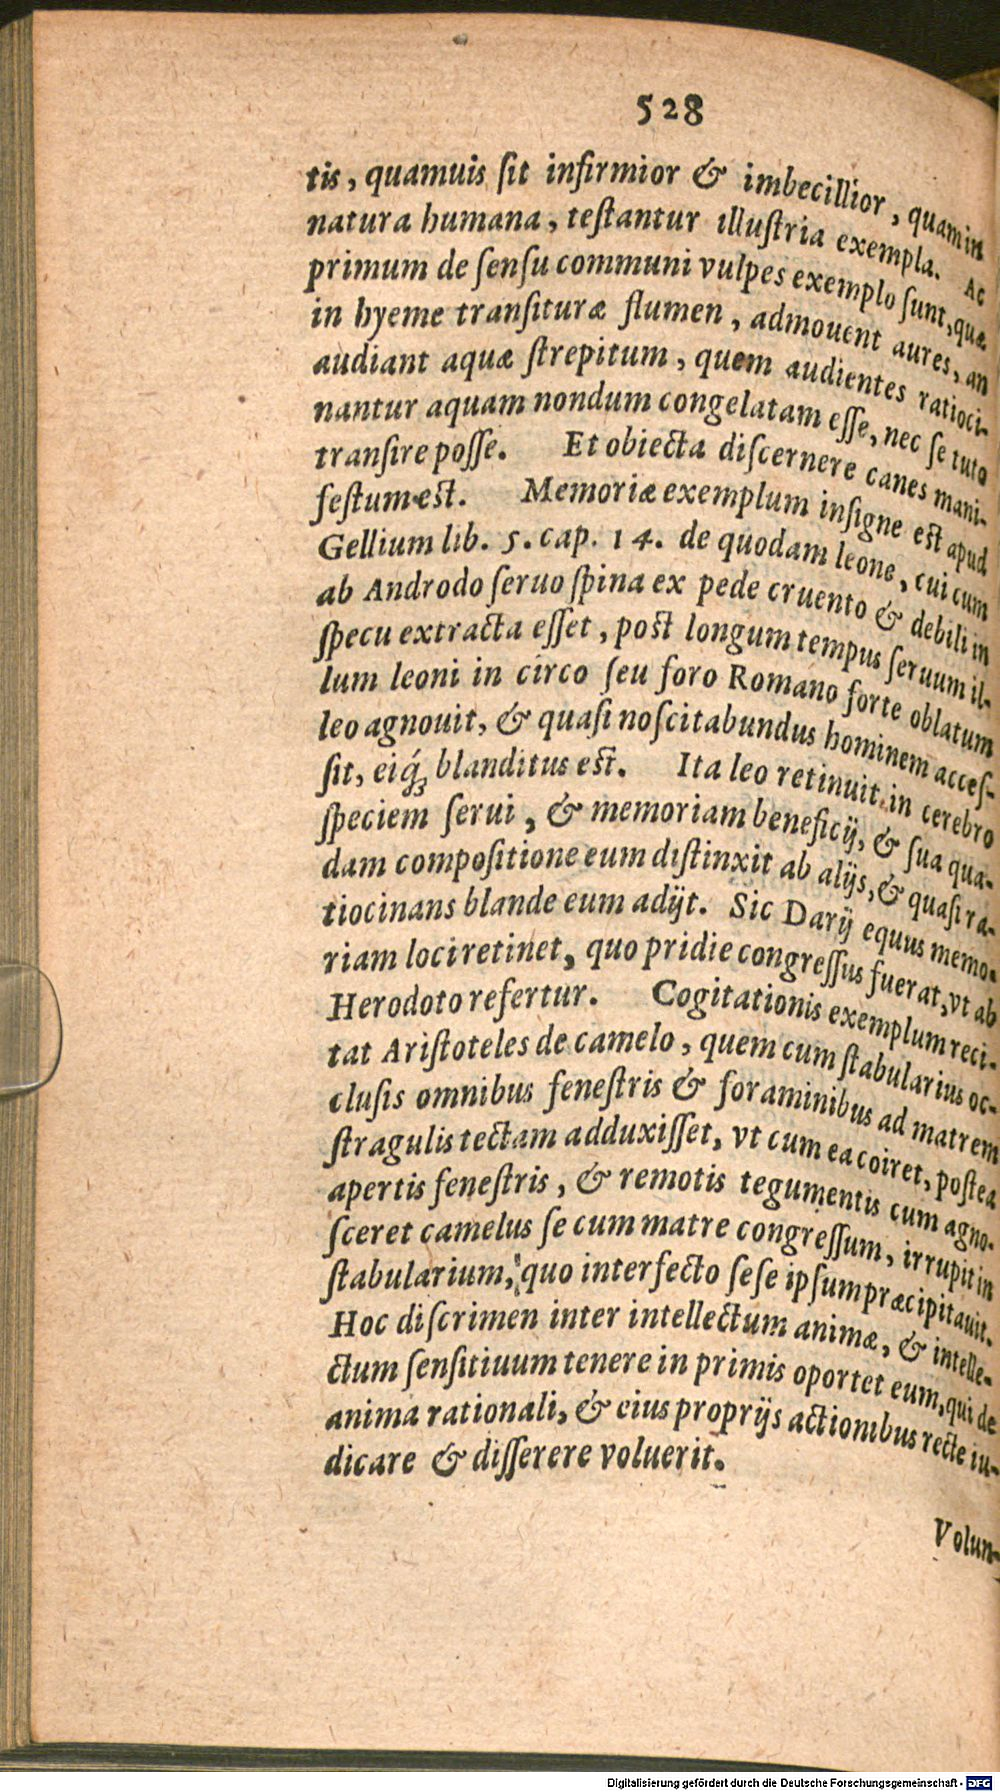 528
tis, quamuis ſit infirmior & imbecillior, quam in
natura humana, teſtantur illuſtria exempla. Ac
primum de ſenſu communi vulpes exemplo ſunt, quæ
in hyeme tranſituræ flumen, admouent aures, an
audiant aquæ ſtrepitum, quem audientes ratioci-
nantur aquam nondum congelatam eſſe, nec ſe tuto
tranſire poſſe. Et obiecta diſcernere canes mani-
feſtum est. Memoriæ exemplum inſigne est apud
Gellium lib. 5. cap. 14. de quodam leone, cui cum
ab Androdo ſeruo ſpina ex pede cruento & debili in
ſpecu extracta eſſet, post longum tempus ſeruum il-
lum leoni in circo ſeu foro Romano forte oblatum
leo agnouit, & quaſi noſcitabundus hominem acceſ-
ſit, eiq́ꝫ blanditus est. Ita leo retinuit in cerebro
ſpeciem ſerui, & memoriam beneficij, & ſua qua-
dam compoſitione eum diſtinxit ab alijs, & quaſi ra-
tiocinans blande eum adijt. Sic Darij equus memo-
riam loci retinet, quo pridie congreſſus fuerat, vt ab
Herodoto refertur. Cogitationis exemplum reci-
tat Ariſtoteles de camelo, quem cum ſtabularius oc-
cluſis omnibus feneſtris & foraminibus ad matrem
ſtragulis tectam adduxiſſet, vt cum ea coiret, poſtea
apertis feneſtris, & remotis tegumentis cum agno-
ſceret camelus ſe cum matre congreſſum, irrupit in
ſtabularium, quo interfecto ſeſe ipſum præcipitauit.
Hoc diſcrimen inter intellectum animæ, & intelle-
ctum ſenſitiuum tenere in primis oportet eum, qui de
anima rationali, & eius proprijs actionibus recte iu-
dicare & diſſerere voluerit.
Volun-
Digitalisierung gefördert durch die Deutsche Forschungsgemeinschaft - DFG